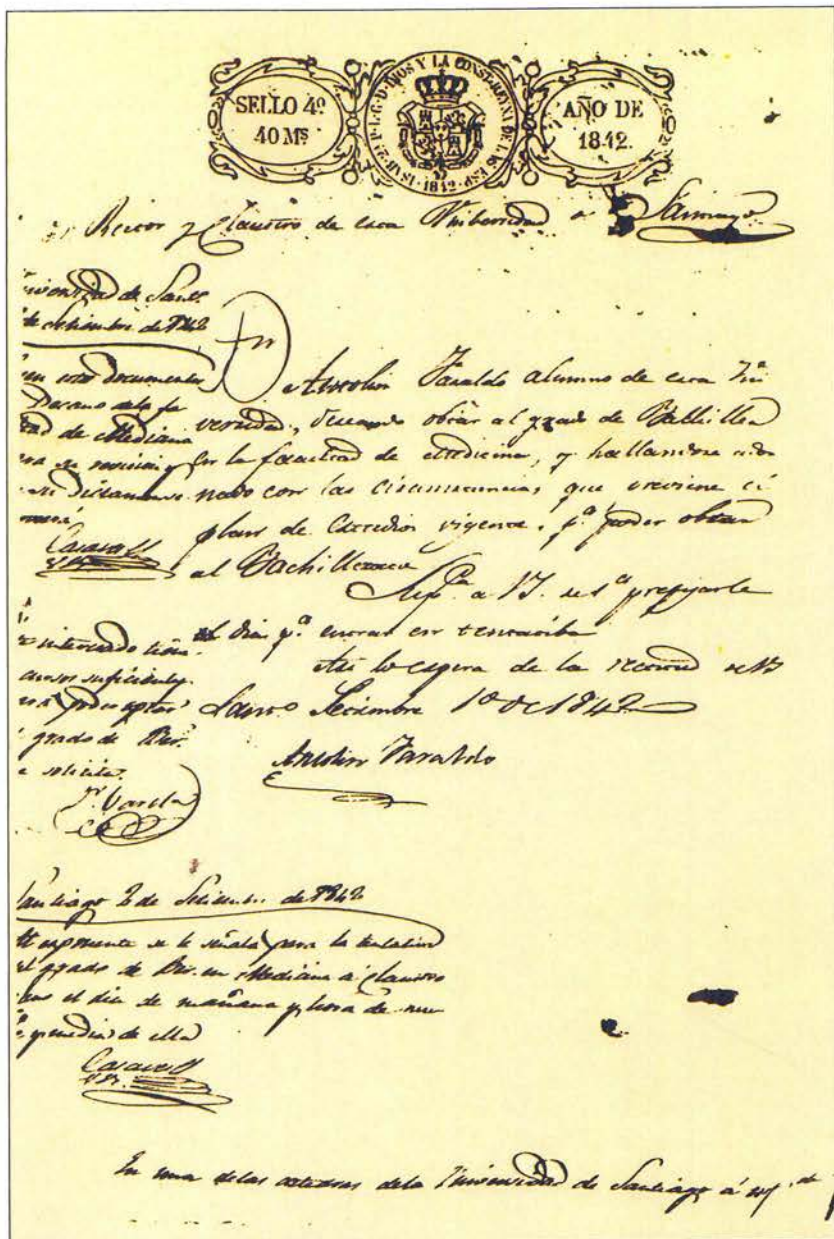 SELLO 4º
40 Mˢ
ISAB. 2ª P. L. G. D. DIOS Y LA CONST. REYNA DE LAS ESP. 1842
AÑO DE
1842.
Rector y Claustro de esa Unibersidad de Santiago
Universidad de Santº
de Setiembre de 1842
documentos
Decano de la fa
ltad de Medicina
para su revision y
su dictamen
Casares
Antolin Faraldo alumno de esa Uni
versidad, deseando obtar al grado de Bachiller
en la facultad de Medicina, y hallandose ador
nado con las circunstancias que previene el
plan de Estudios vigente, pª poder obtar
al Bachillerato
Supᶜᵃ a V. prefijarle
el dia pª entrar en tentatiba
Asi lo espera de la rectitud de V
Santº Setiembre 1º de 1842
Antolin Faraldo
interesado tiene
cursos suficientes
para poder optar
grado de Bʳ
solicita.
Varela
Santiago 2 de Setiembre de 1842
Al esponente se le señala para la tentativa
del grado de Bʳ en Medicina a Claustro
pleno el dia de mañana y hora de nue
ve y media de ella
Casares
En una de las catedras de la Universidad de Santiago á